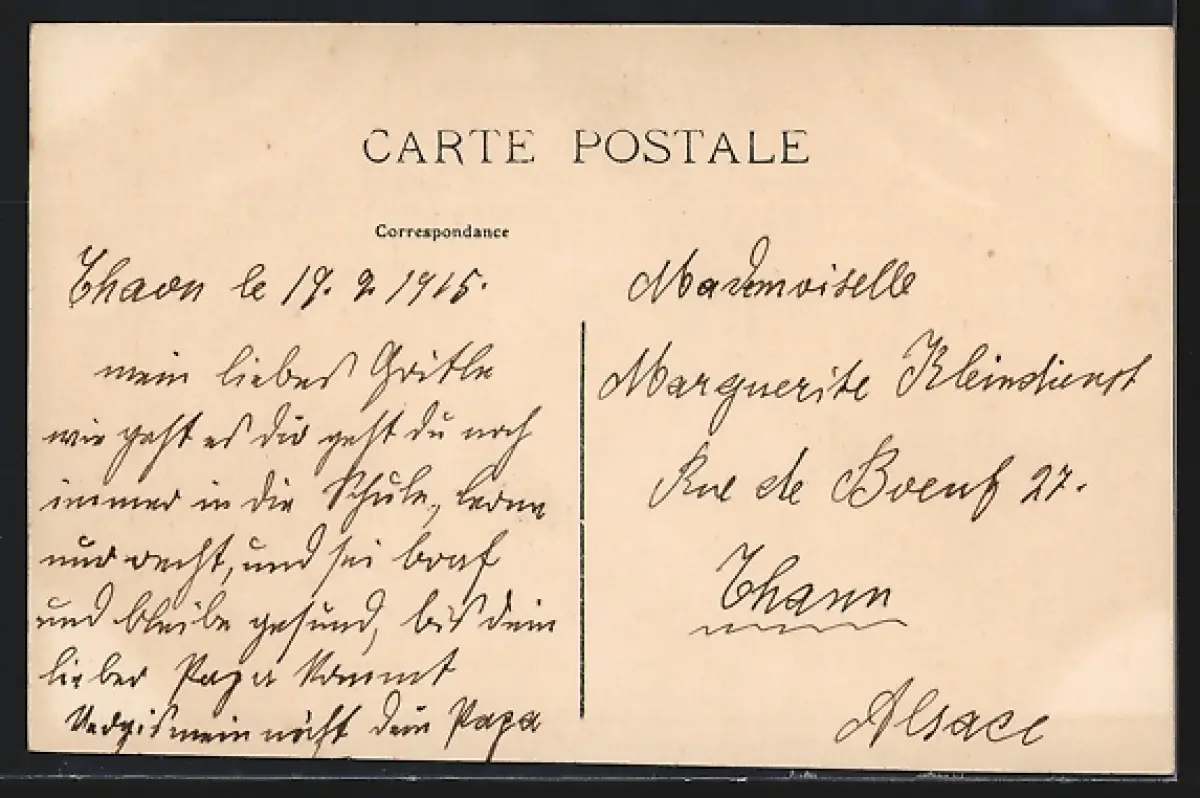 CARTE POSTALE
Correspondance
Thaon le 19. 2. 1915.
mein liebes Gritle
wie geht es dir geht du noch
immer in die Schule, lerne
nur recht, und sei braf
und bleibe gesund, bis dein
lieber Papa kommt
Vergismeinnicht dein Papa
Mademoiselle
Marguerite Kleindienst
Rue de Boeuf 27.
Thann
Alsace